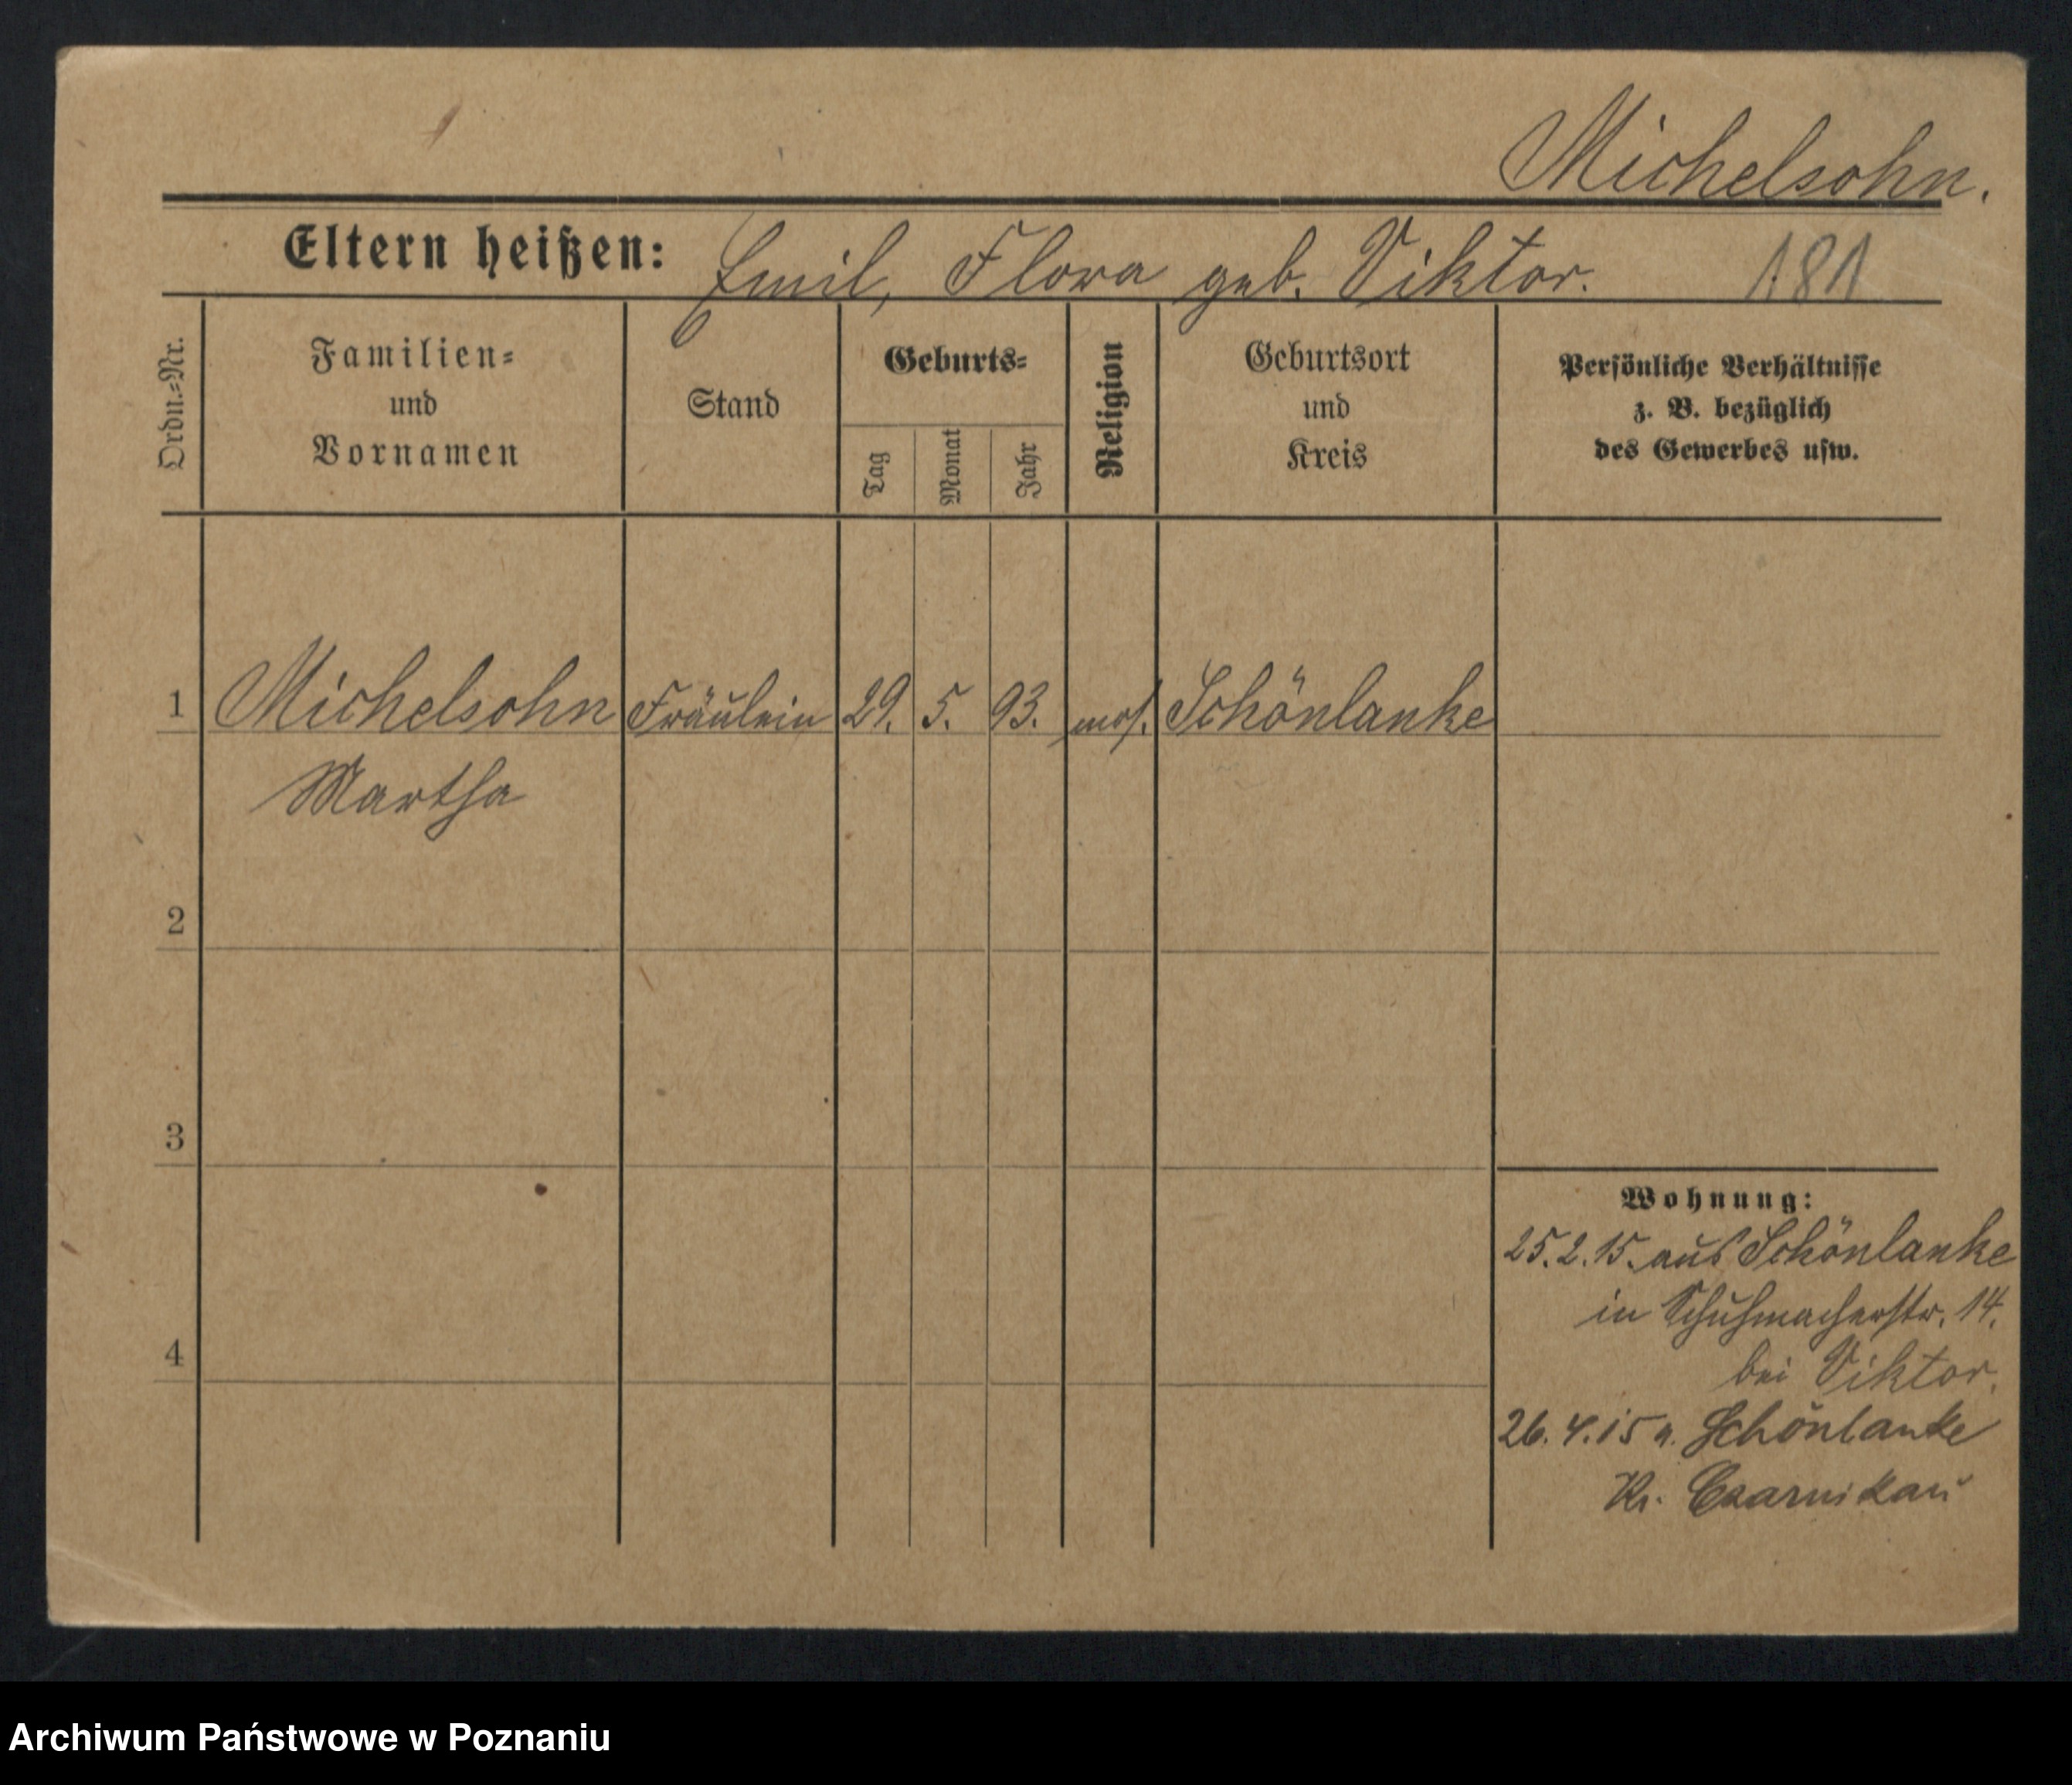 Michelsohn.
Eltern heißen: Emil, Flora geb. Viktor. 181
Ordn.-Nr.
Familien-
und
Vornamen
Stand
Geburts-
Tag
Monat
Jahr
Religion
Geburtsort
und
Kreis
Persönliche Verhältnisse
z. B. bezüglich
des Gewerbes usw.
1 Michelsohn Fräulein 29. 5. 93. mos. Schönlanke
Martha
2
3
4
Wohnung:
25.2.15. aus Schönlanke
in Schuhmacherstr. 14.
bei Viktor.
26.4.15 n. Schönlanke
Kr. Czarnikau
Archiwum Państwowe w Poznaniu